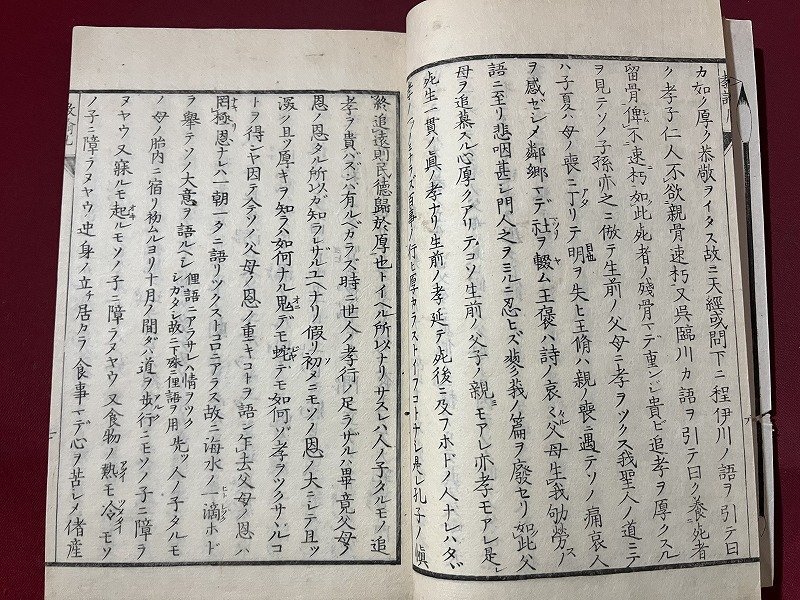 カ如ク厚ク恭敬ヲイタス故ニ天經或問下ニ程伊川ノ語ヲ引テ曰
ク孝子仁人不欲親骨速朽又呉臨川カ語ヲ引テ曰ク養死者
留骨俾不速朽如此死者ノ殘骨マデ重ンじ貴ビ追孝ヲ厚クスル
ヲ見テソノ子孫亦之ニ倣テ生前ノ父母ニ孝ヲツクス我聖人ノ道ニテ
ハ子夏ハ母ノ喪ニ丁リテ明ヲ失ヒ王脩ハ親ノ喪ニ遇テソノ痛哀人
ヲ感ゼシメ鄰鄉マデ社ヲ輟ム王褒ハ詩ノ哀哀父母生我劬勞ノ
語ニ至リ悲咽甚シ門人之ヲミルニ忍ヒズ蓼莪ノ篇ヲ廢セリ如此父
母ヲ追慕スル心厚クアリテコソ生前ノ父子ノ親ミモアレ亦孝モアレ是レ
死生一貫ノ眞ノ孝ナリ生前ノ孝延テ死後ニ及フホドノ人ナレハタヾ
行ヒ厚カラストイフコトナシ是レ孔子ノ愼
終追遠則民德歸於厚也トイヘル所以ナリサスレハ人ノ子タルモノ追
孝ヲ貴バズンハ有ルベカラズ時ニ世人ノ孝行ノ足ラザルハ畢竟父母ノ
恩ノ恩タル所以ガ知ラレザルユヘナリ假リ初メニモソノ恩ノ大ニシテ且ツ
深ク且ツ厚キヲ知ラハ如何ナル鬼デモ蛇デモ如何ソ孝ヲツクサヾルコ
トヲ得ンヤ因テ今ソノ父母ノ恩ノ重キコトヲ語ン乍去父母ノ恩ハ
罔極恩ナレハ一朝一夕ニ語リツクストコロニアラス故ニ海水ノ一滴ホド
ヲ舉テソノ大意ヲ語ルベシ俚語ニアラサレハ情ヲツクシカタシ故ニ下殊ニ俚語ヲ用先ツ人ノ子タルモ
ノ母ノ胎內ニ宿リ初ムルヨリ十月ノ間ダハ道ヲ步行ニモソノ子ニ障ラ
ヌヤウ又寐ルモ起ルモソノ子ニ障ラヌヤウ又食物ノ熱モ冷モソ
ノ子ニ障ラヌヤウ迚身ノ立チ居カラ食事マデ心ヲ苦シメ偖産